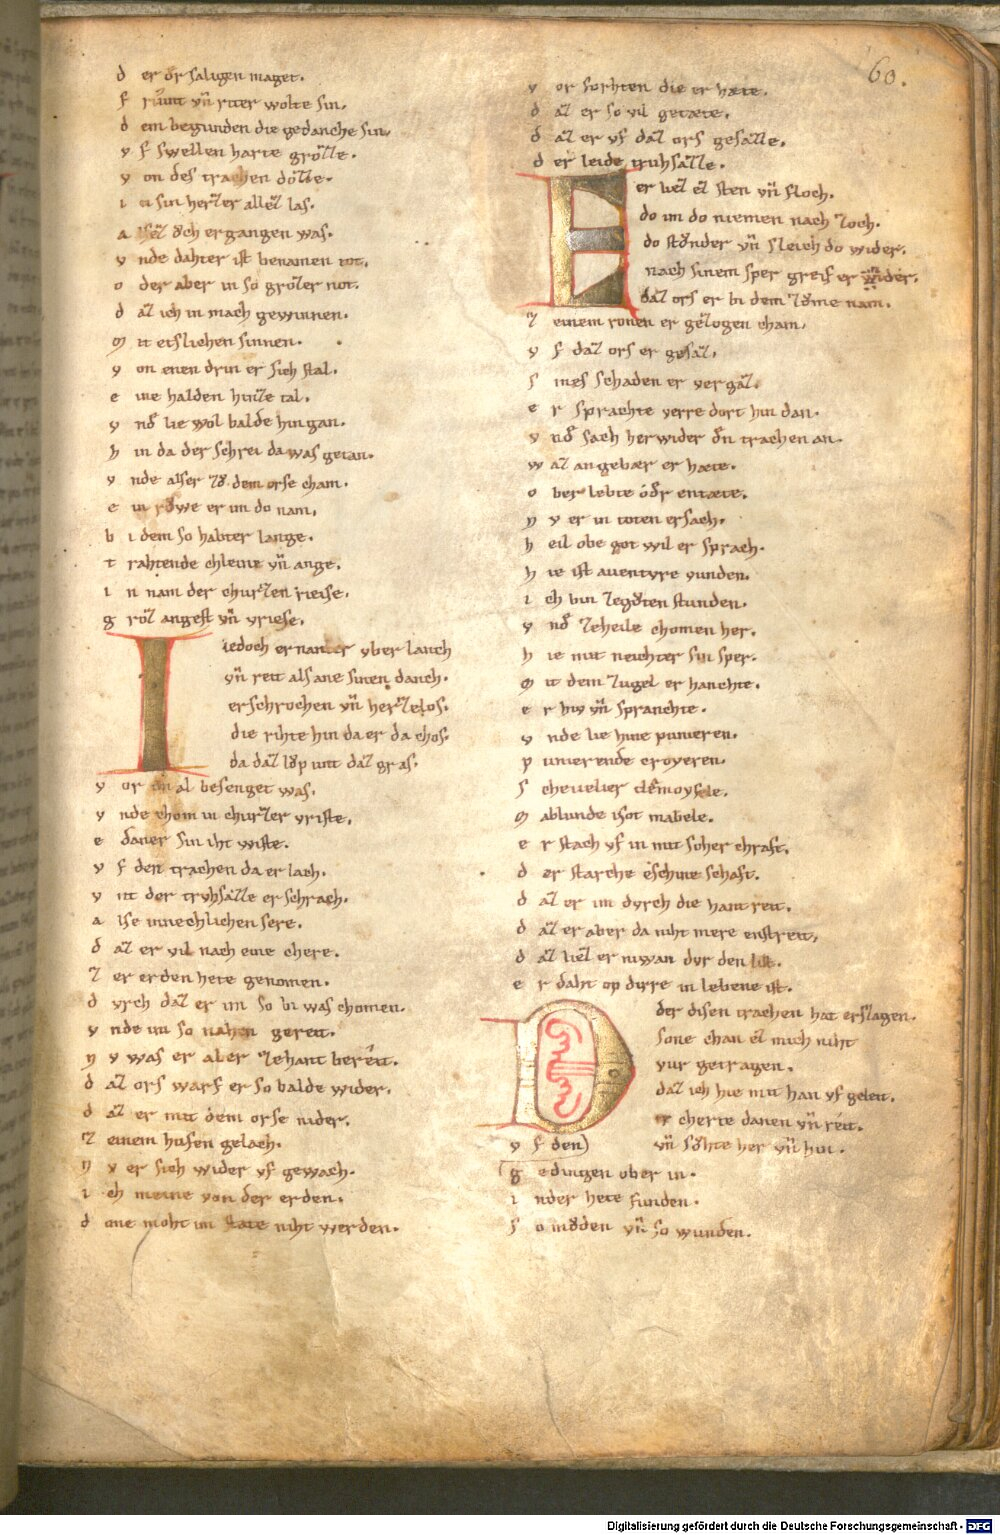 60.
d er der saligen maget.
f riunt vn̄ riter wolte sin.
d em begunden die gedanche sin.
v f swellen harte grozze.
v on des trachen dozze.
i a sin herzer allez las.
a lsez ovch ergangen was.
v nde dahter ist benamen tot.
o der aber in so grozer not.
d az ich in mach gewinnen.
m it etslichen sinnen.
v on enen drin er sich stal.
e ine halden hinze tal.
v nd lie wol balde hingan.
h in da der schrei da was getan.
v nde alser zv dem orse cham.
e in rowe er im do nam.
b i dem so habter lange.
t rahtende chleine vn̄ ange.
i n nam der churzen rieise.
g roz angest vn̄ vriese.
I iedoch ernanter vber lanch
vn̄ reit als ane sinen danch.
erschrochen vn̄ herzelos.
die rihte hin da er da chos.
da daz lovp unt daz gras.
v or on al besenget was.
v nde chom in churzer vriste.
e daner sin iht wiste.
v f den trachen da er lach.
v nt der trvhsazze erschrach.
a lse innechlichen sere.
d az er vil nach eine chere.
z er erden hete genomen.
d vrch daz er im so bi was chomen.
v nde im so nahen gereit.
n v was er aber zehant bereit.
d az ors warf er so balde wider.
d az er mit dem orse nider.
z einem hufen gelach.
n v er sich wider vf gewach.
i ch meine von der erden.
d one moht im state niht werden.
v or vorhten die er hæte.
d az er so vil getæte.
d az er vf daz ors gesazze.
d er leide truhsazze.
E er liez ez sten vn̄ floch.
do im do niemen nach zoch.
do stonder vn̄ sleich do wider.
nach sinem sper greif er wider.
daz ors er bi dem zovme nam.
z einem ronen er gezogen cham.
v f daz ors er gesaz.
s ines schaden er vergaz.
e r sprachte verre dort hin dan.
v nd sach herwider den trachen an.
w az angebær er hæte.
o ber lebte oder entæte.
n v er in toten ersach.
h eil obe got wil er sprach.
h ie ist auentvre vunden.
i ch bin zegvten stunden.
v nd zeheile chomen her.
h ie mit neichter sin sper.
m it dem zugel er hanchte.
e r hiv vn̄ spranchte.
v nde lie hine punieren.
p unierende croyeren.
s chevelier demoysele.
m ablunde isot mabele.
e r stach vf in mit soher chraft.
d er starche eschine schaft.
d az er im dvrch die hant reit.
d az er aber da niht mere enstreit.
d az liez er niwan dvr den list.
e r daht op dirre in lebene ist.
D der disen trachen hat erslagen.
sone chan ez mich niht
vur getragen.
daz ich hie mit han vf geleit.
er cherte danen vn̄ reit.
vn̄ sohte her vn̄ hin.
v f den
g edingen ober in.
i nder hete funden.
s o moden vn̄ so wunden.
Digitalisierung gefördert durch die Deutsche Forschungsgemeinschaft - DFG